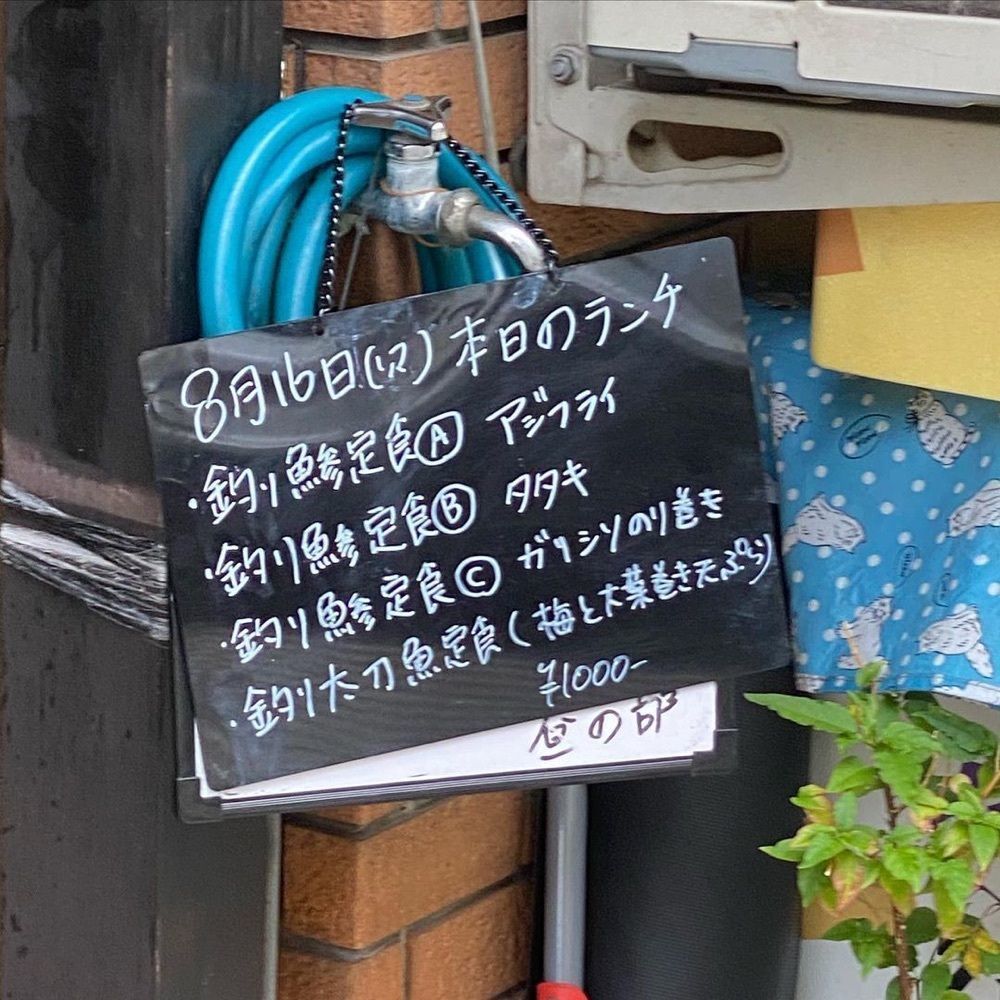 8月16日(火)本日のランチ
・釣り鯵定食Ⓐ アジフライ
・釣り鯵定食Ⓑ タタキ
・釣り鯵定食Ⓒ ガリシソのり巻き
・釣り太刀魚定食(梅と大葉巻き天ぷら)
¥1000-
昼の部